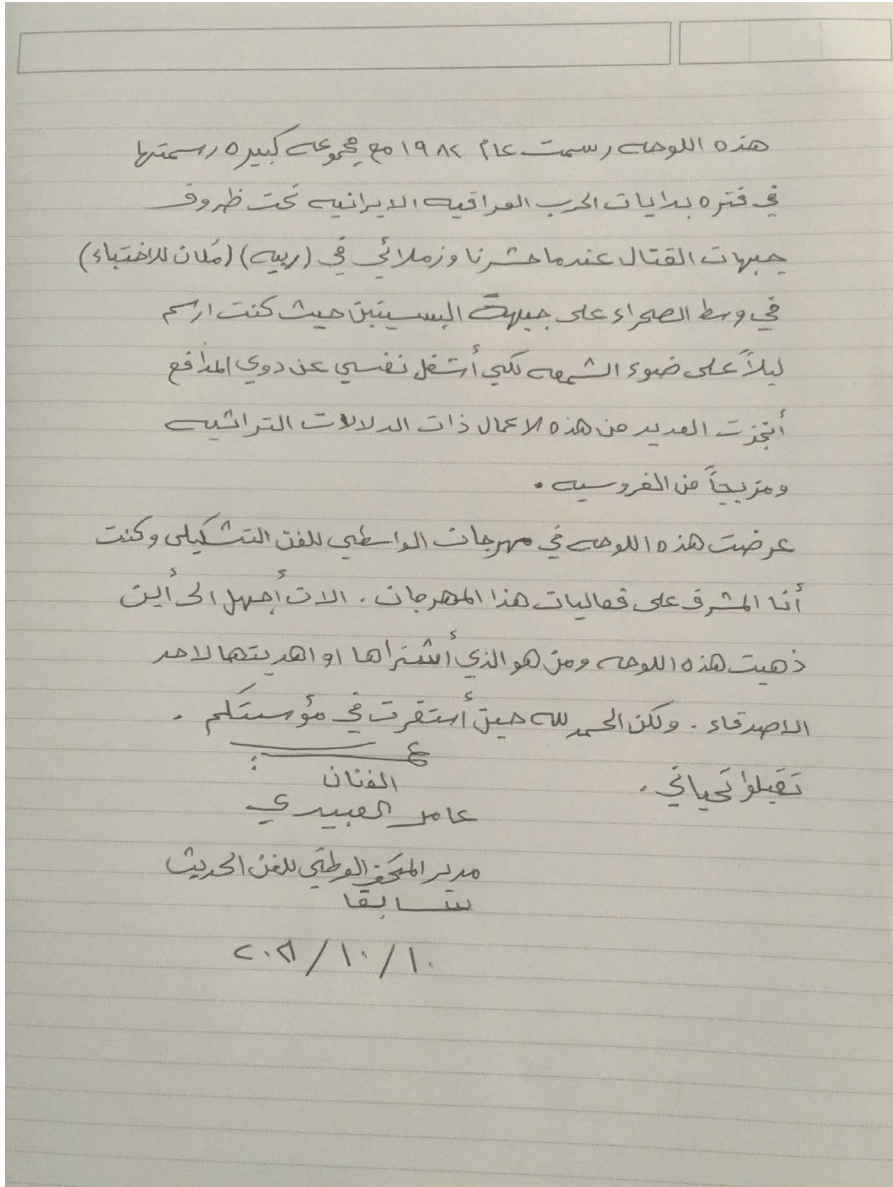 هذه اللوحه رسمت عام ١٩٨٢ مع مجموعه كبيره رسمتها
في فتره بدايات الحرب العراقيه الايرانيه تحت ظروف
جبهات القتال عندما حشرنا وزملائي في (ربيه) (مكان للاختباء)
في وسط الصحراء على جبهة البسيتين حيث كنت ارسم
ليلاً على ضوء الشمعه لكي أشغل نفسي عن دوي المدافع
أنجزت العديد من هذه الاعمال ذات الدلالات التراثيه
ومزيجاً من الفروسيه .
عرضت هذه اللوحه في مهرجان الواسطي للفن التشكيلي وكنت
أنا المشرف على فعاليات هذا المهرجان . الان أجهل الى أين
ذهبت هذه اللوحه ومن هو الذي أشتراها او اهديتها لاحد
الاصدقاء . ولكن الحمد لله حين أستقرت في مؤسستكم .
تقبلوا تحياتي .
الفنان
عامر العبيدي
مدير المتحف الوطني للفن الحديث
سابقا
١٠/١٠/